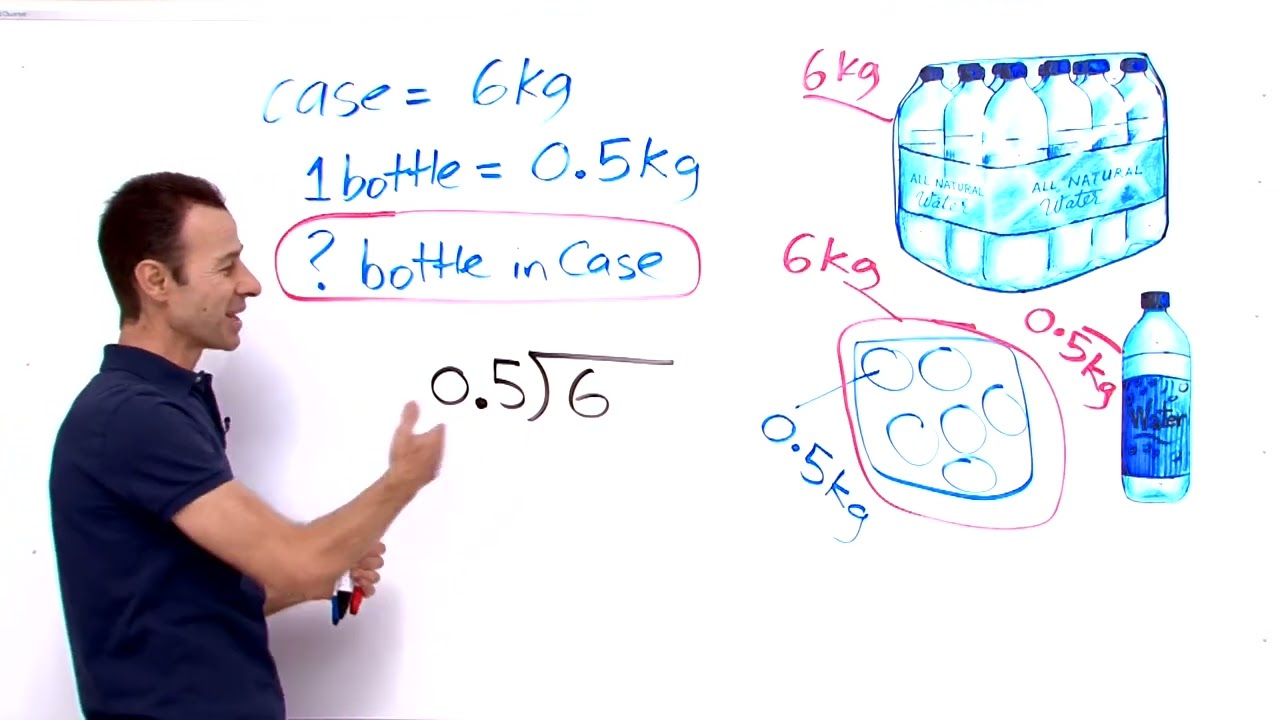 case = 6kg
1 bottle = 0.5kg
? bottle in Case
0.5)6
6kg
ALL NATURAL
Water
ALL NATURAL
Water
6kg
0.5kg
0.5kg
Water